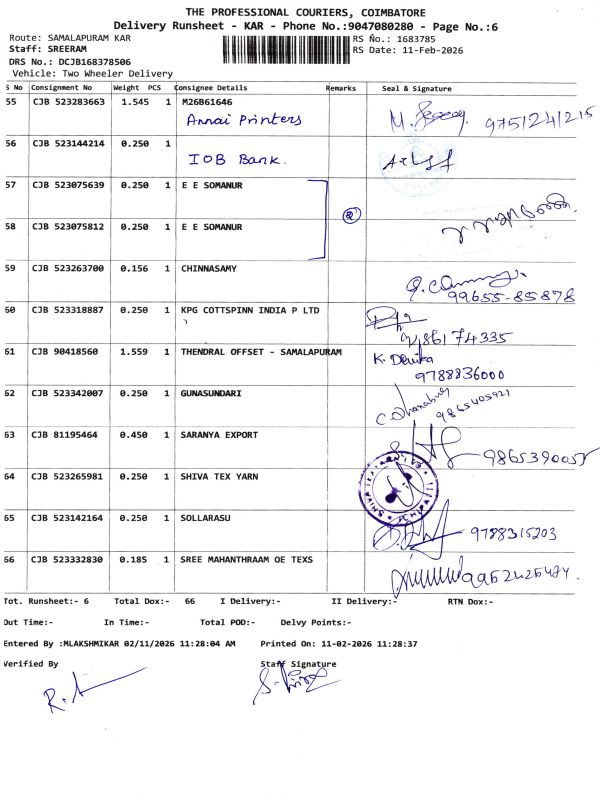 THE PROFESSIONAL COURIERS, COIMBATORE
Delivery Runsheet - KAR - Phone No.:9047080280 - Page No.:6
Route: SAMALAPURAM KAR
RS No.: 1683785
Staff: SREERAM
RS Date: 11-Feb-2026
DRS No.: DCJB168378506
Vehicle: Two Wheeler Delivery
S No Consignment No Weight PCS Consignee Details Remarks Seal & Signature
55 CJB 523283663 1.545 1 M26B61646
Annai Printers 9751241215
56 CJB 523144214 0.250 1
IOB Bank.
57 CJB 523075639 0.250 1 E E SOMANUR
58 CJB 523075812 0.250 1 E E SOMANUR
59 CJB 523263700 0.156 1 CHINNASAMY
99655-85878
60 CJB 523318887 0.250 1 KPG COTTSPINN INDIA P LTD
61 CJB 90418560 1.559 1 THENDRAL OFFSET - SAMALAPURAM
K. Denika
9788836000
62 CJB 523342007 0.250 1 GUNASUNDARI
9865405921
63 CJB 81195464 0.450 1 SARANYA EXPORT
9865390055
64 CJB 523265981 0.250 1 SHIVA TEX YARN
65 CJB 523142164 0.250 1 SOLLARASU
9788315203
66 CJB 523332830 0.185 1 SREE MAHANTHRAAM OE TEXS
Tot. Runsheet:- 6 Total Dox:- 66 I Delivery:- II Delivery:- RTN Dox:-
Out Time:- In Time:- Total POD:- Delvy Points:-
Entered By :MLAKSHMIKAR 02/11/2026 11:28:04 AM Printed On: 11-02-2026 11:28:37
Verified By Staff Signature